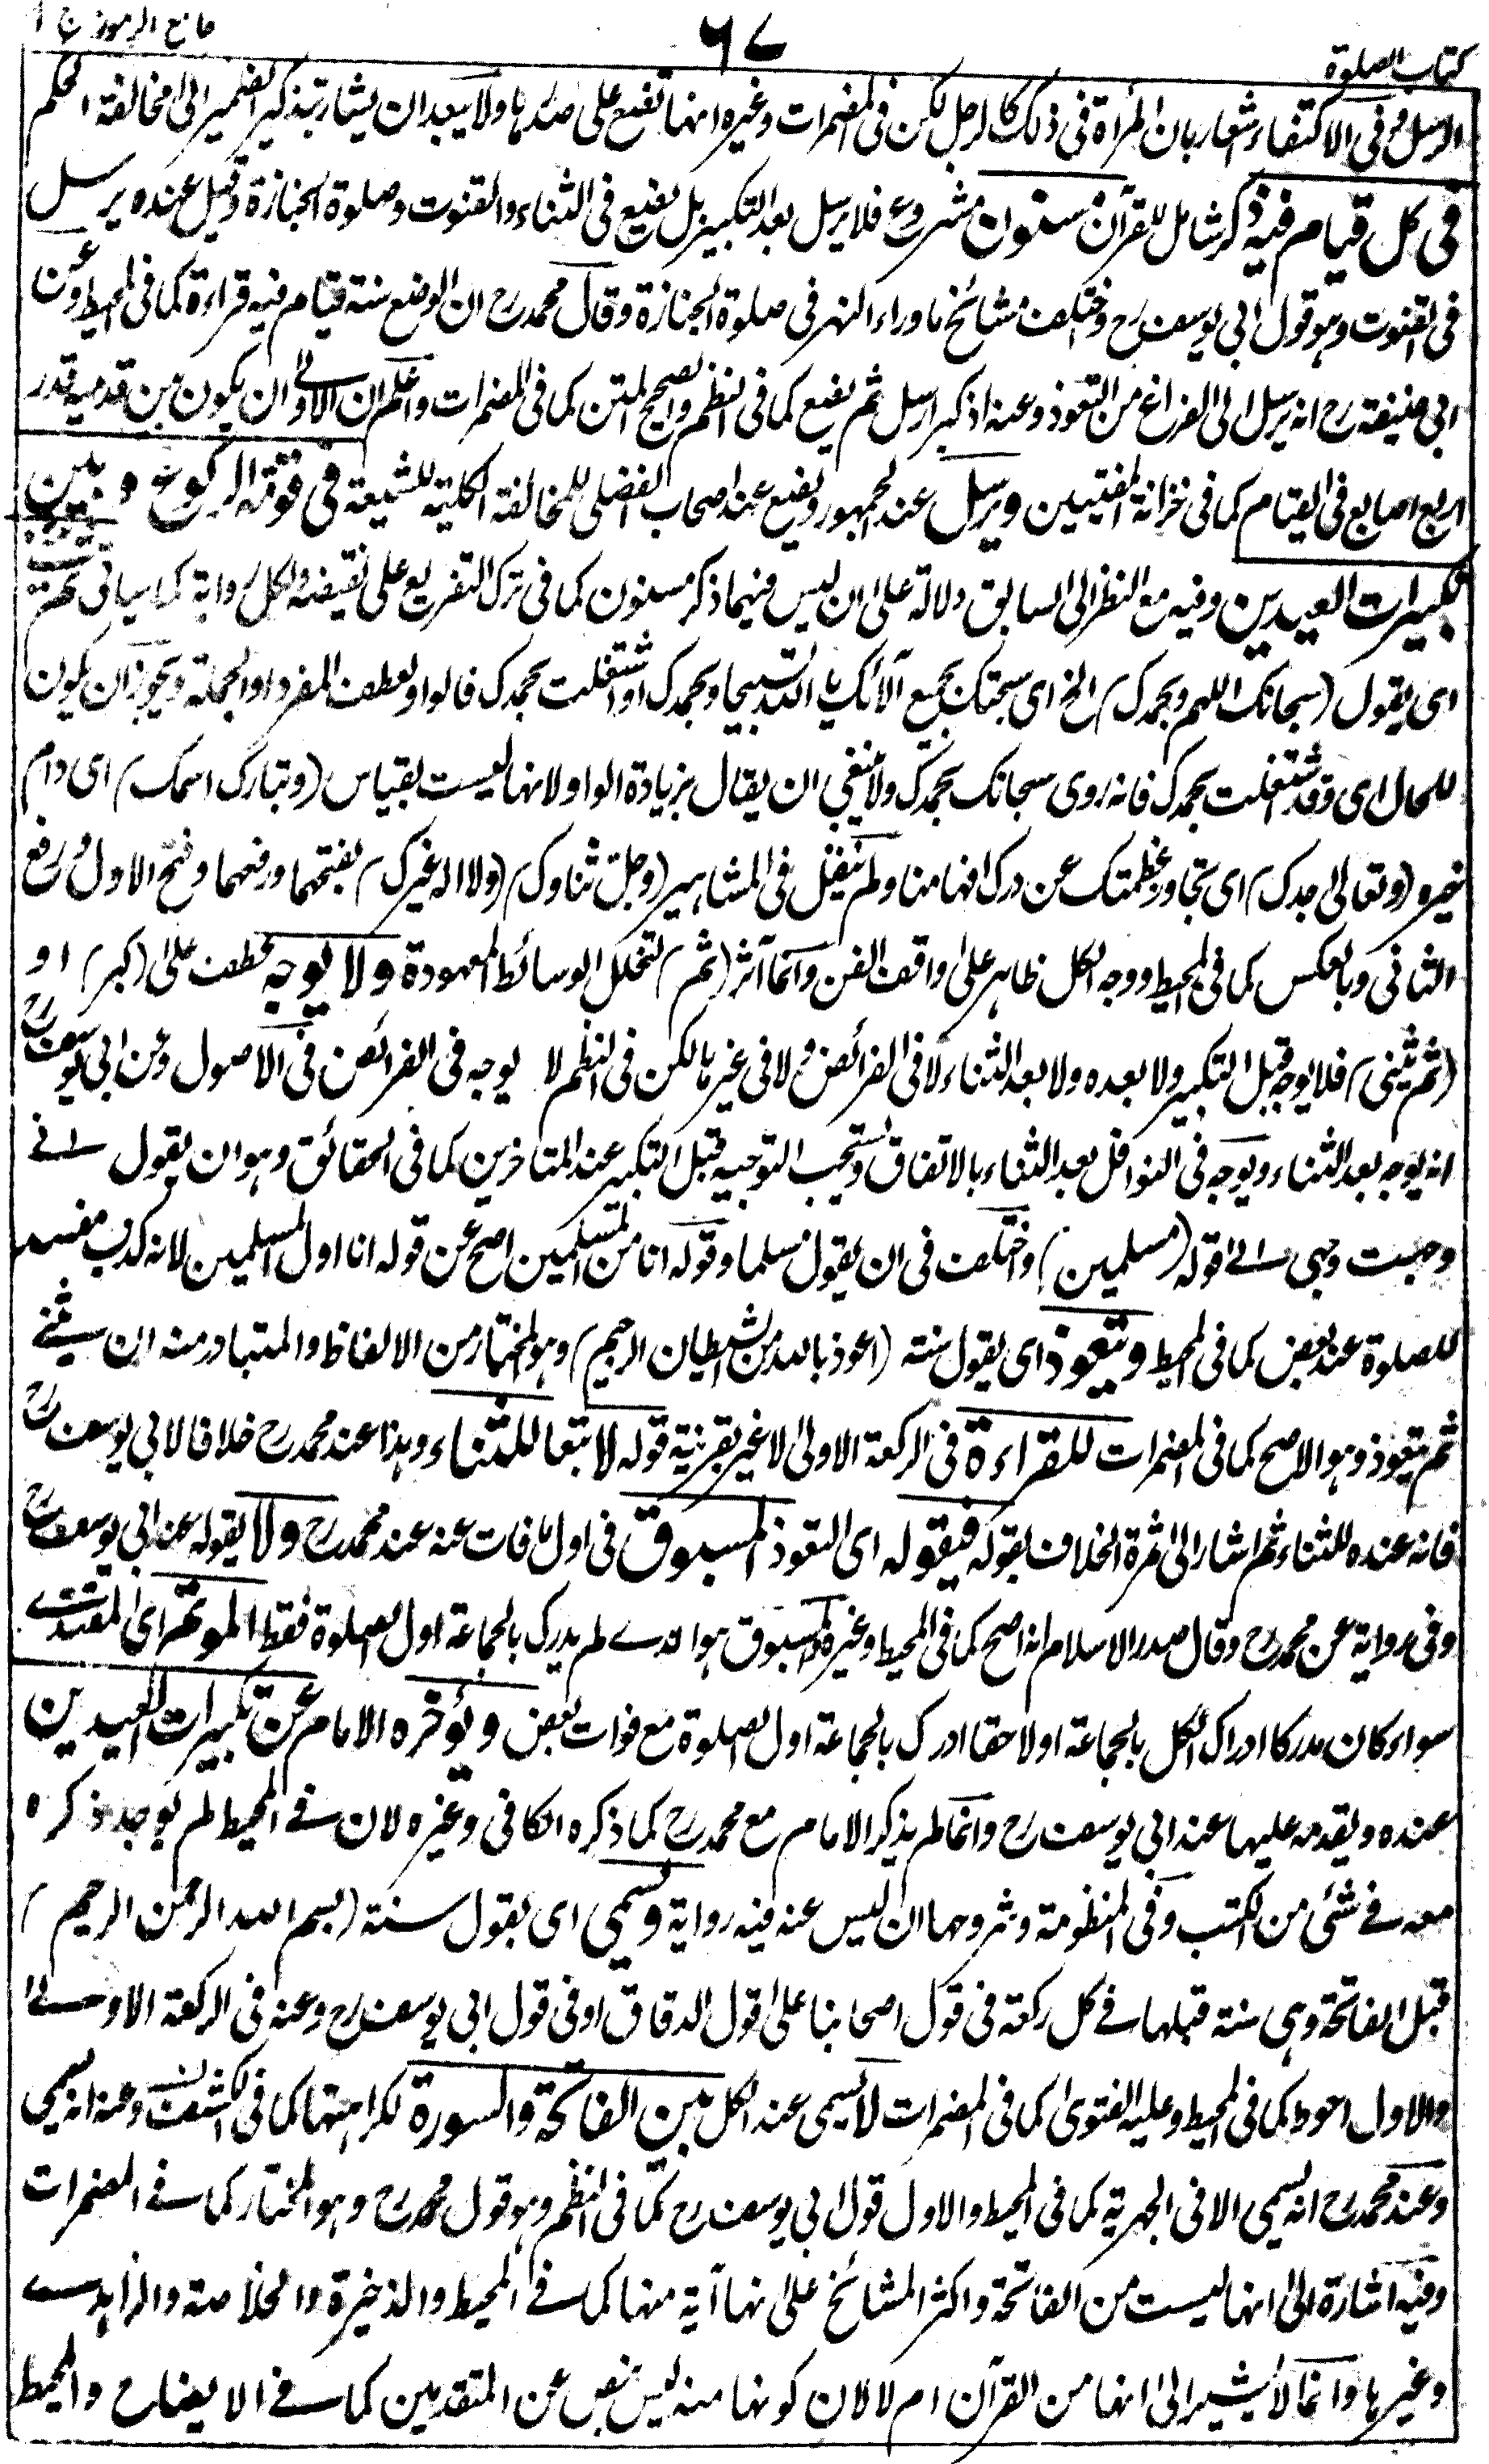 جامع الرموز ج ١
٦٧
كتاب الصلوة
الرسل وفى الاكتفاء اشعار بان المرأة فى ذلك كالرجل لكن فى المضمرات وغيره انها تضع على صدرها ولا يبعد ان يشار بتذكير الضمير الى مخالفة الحكم
فى كل قيام فيه ذكر شامل للقرآن مسنون مشروع فلا يرسل بعد التكبير بل يضع فى الثناء والقنوت وصلوة الجنازة وقيل عنده يرسل
فى القنوت وهو قول ابى يوسف رح واختلف مشائخ ما وراء النهر فى صلوة الجنازة وقال محمد رح ان الوضع سنة قيام فيه قراءة كما فى المحيط وعن
ابى حنيفة رح انه يرسل الى الفراغ من التعوذ وعنه اذ كبر ارسل ثم يضع كما فى النظم والصحيح المتن كما فى المضمرات واعلم ان الاولى ان يكون بين قدميه قدر
اربع اصابع فى القيام كما فى خزانة المفتيين ويرسل عند الجمهور ويضع عند اصحاب الفضلى للمخالفة الكلية للشيعة فى قومة الركوع وبين
تكبيرات العيدين وفيه مع النظر الى السابق دلالة على ان ليس فيهما ذكر مسنون كما فى ترك التفريع على نقيضه ولكل رواية كما سياتى ثم يثنى
اى يقول (سبحانك اللهم وبحمدك) الخ اى سبحتك بجميع آلائك يا الله تسبيحا وبحمدك او اشتغلت بحمدك فالواو لعطف المفرد او الجملة ويجوز ان يكون
للحال اى وقد اشتغلت بحمدك فانه روى سبحانك بحمدك ولا ينبغى ان يقال بزيادة الواو لانها ليست بقياس (وتبارك اسمك) اى دام
خيره (وتعالى جدك) اى تجاوز عظمتك عن درك افهامنا ولم ينقل فى المشاهير (وجل ثناؤك) (ولا اله غيرك) بفتحهما ورفعهما وفتح الاول ورفع
الثانى وبالعكس كما فى المحيط ووجه الكل ظاهر على واقف الفن وانما آثر (ثم) لتخلل الوسائط المعهودة ولا يوجه عطف على (كبر) او
(ثم يثنى) فلا يوجه قبل التكبير ولا بعده ولا بعد الثناء لا فى الفرائض ولا فى غيرها لكن فى النظم لا يوجه فى الفرائض فى الاصول وعن ابى يوسف رح
انه يوجه بعد الثناء ويوجه فى النوافل بعد الثناء بالاتفاق ويستحب التوجيه قبل التكبير عند المتاخرين كما فى الحقائق وهو ان يقول انى
وجهت وجهى الى قوله (مسلمين) واختلف فى ان يقول مسلما وقوله انا من المسلمين اصح عن قوله انا اول المسلمين لانه كذب مفسد
للصلوة عند بعض كما فى المحيط ويتعوذ اى يقول سنة (اعوذ بالله من الشيطان الرجيم) وهو المختار من الالفاظ والمتبادر منه ان يثنى
ثم يتعوذ وهو الاصح كما فى المضمرات للقراءة فى الركعة الاولى لا غير بقرينة قوله لا تبعا للثناء وهذا عند محمد رح خلافا لابى يوسف رح
فانه عنده للثناء ثم اشار الى ثمرة الخلاف بقوله فيقوله اى التعوذ المسبوق فى اول ما فات عنه عند محمد رح ولا يقوله عند ابى يوسف رح
وفى رواية عن محمد رح وقال صدر الاسلام انه اصح كما فى المحيط وغيره والمسبوق هو الذى لم يدرك بالجماعة اول الصلوة فقط الموتم اى المقتدى
سواء كان مدركا ادراك الكل بالجماعة او لاحقا ادرك بالجماعة اول الصلوة مع فوات بعض ويؤخره الامام عن تكبيرات العيدين
عنده ويقدمه عليها عند ابى يوسف رح وانما لم يذكر الامام مع محمد رح كما ذكره الكافى وغيره لان فى المحيط لم يوجد ذكره
معه فى شئ من الكتب وفى المنظومة وشروحها ان ليس عنه فيه رواية ويسمى اى يقول سنة (بسم الله الرحمن الرحيم)
قبل الفاتحة وهى سنة قبلها فى كل ركعة فى قول اصحابنا على قول الدقاق او فى قول ابى يوسف رح وعنه فى الركعة الاولى
والاول احوط كما فى المحيط وعليه الفتوى كما فى المضمرات لا يسمى عند الكل بين الفاتحة والسورة لكراهتها كما فى الكشف وعنه انه يسمى
وعند محمد رح انه يسمى الا فى الجهرية كما فى المحيط والاول قول ابى يوسف رح كما فى النظم وهو قول محمد رح وهو المختار كما فى المضمرات
وفيه اشارة الى انها ليست من الفاتحة واكثر المشائخ على انها آية منها كما فى المحيط والذخيرة والخلاصة والزاهدى
وغيرها وانما لا يشير الى انها من القرآن ام لا لان كونها منه ليس بنص عن المتقدمين كما فى الايضاح والمحيط